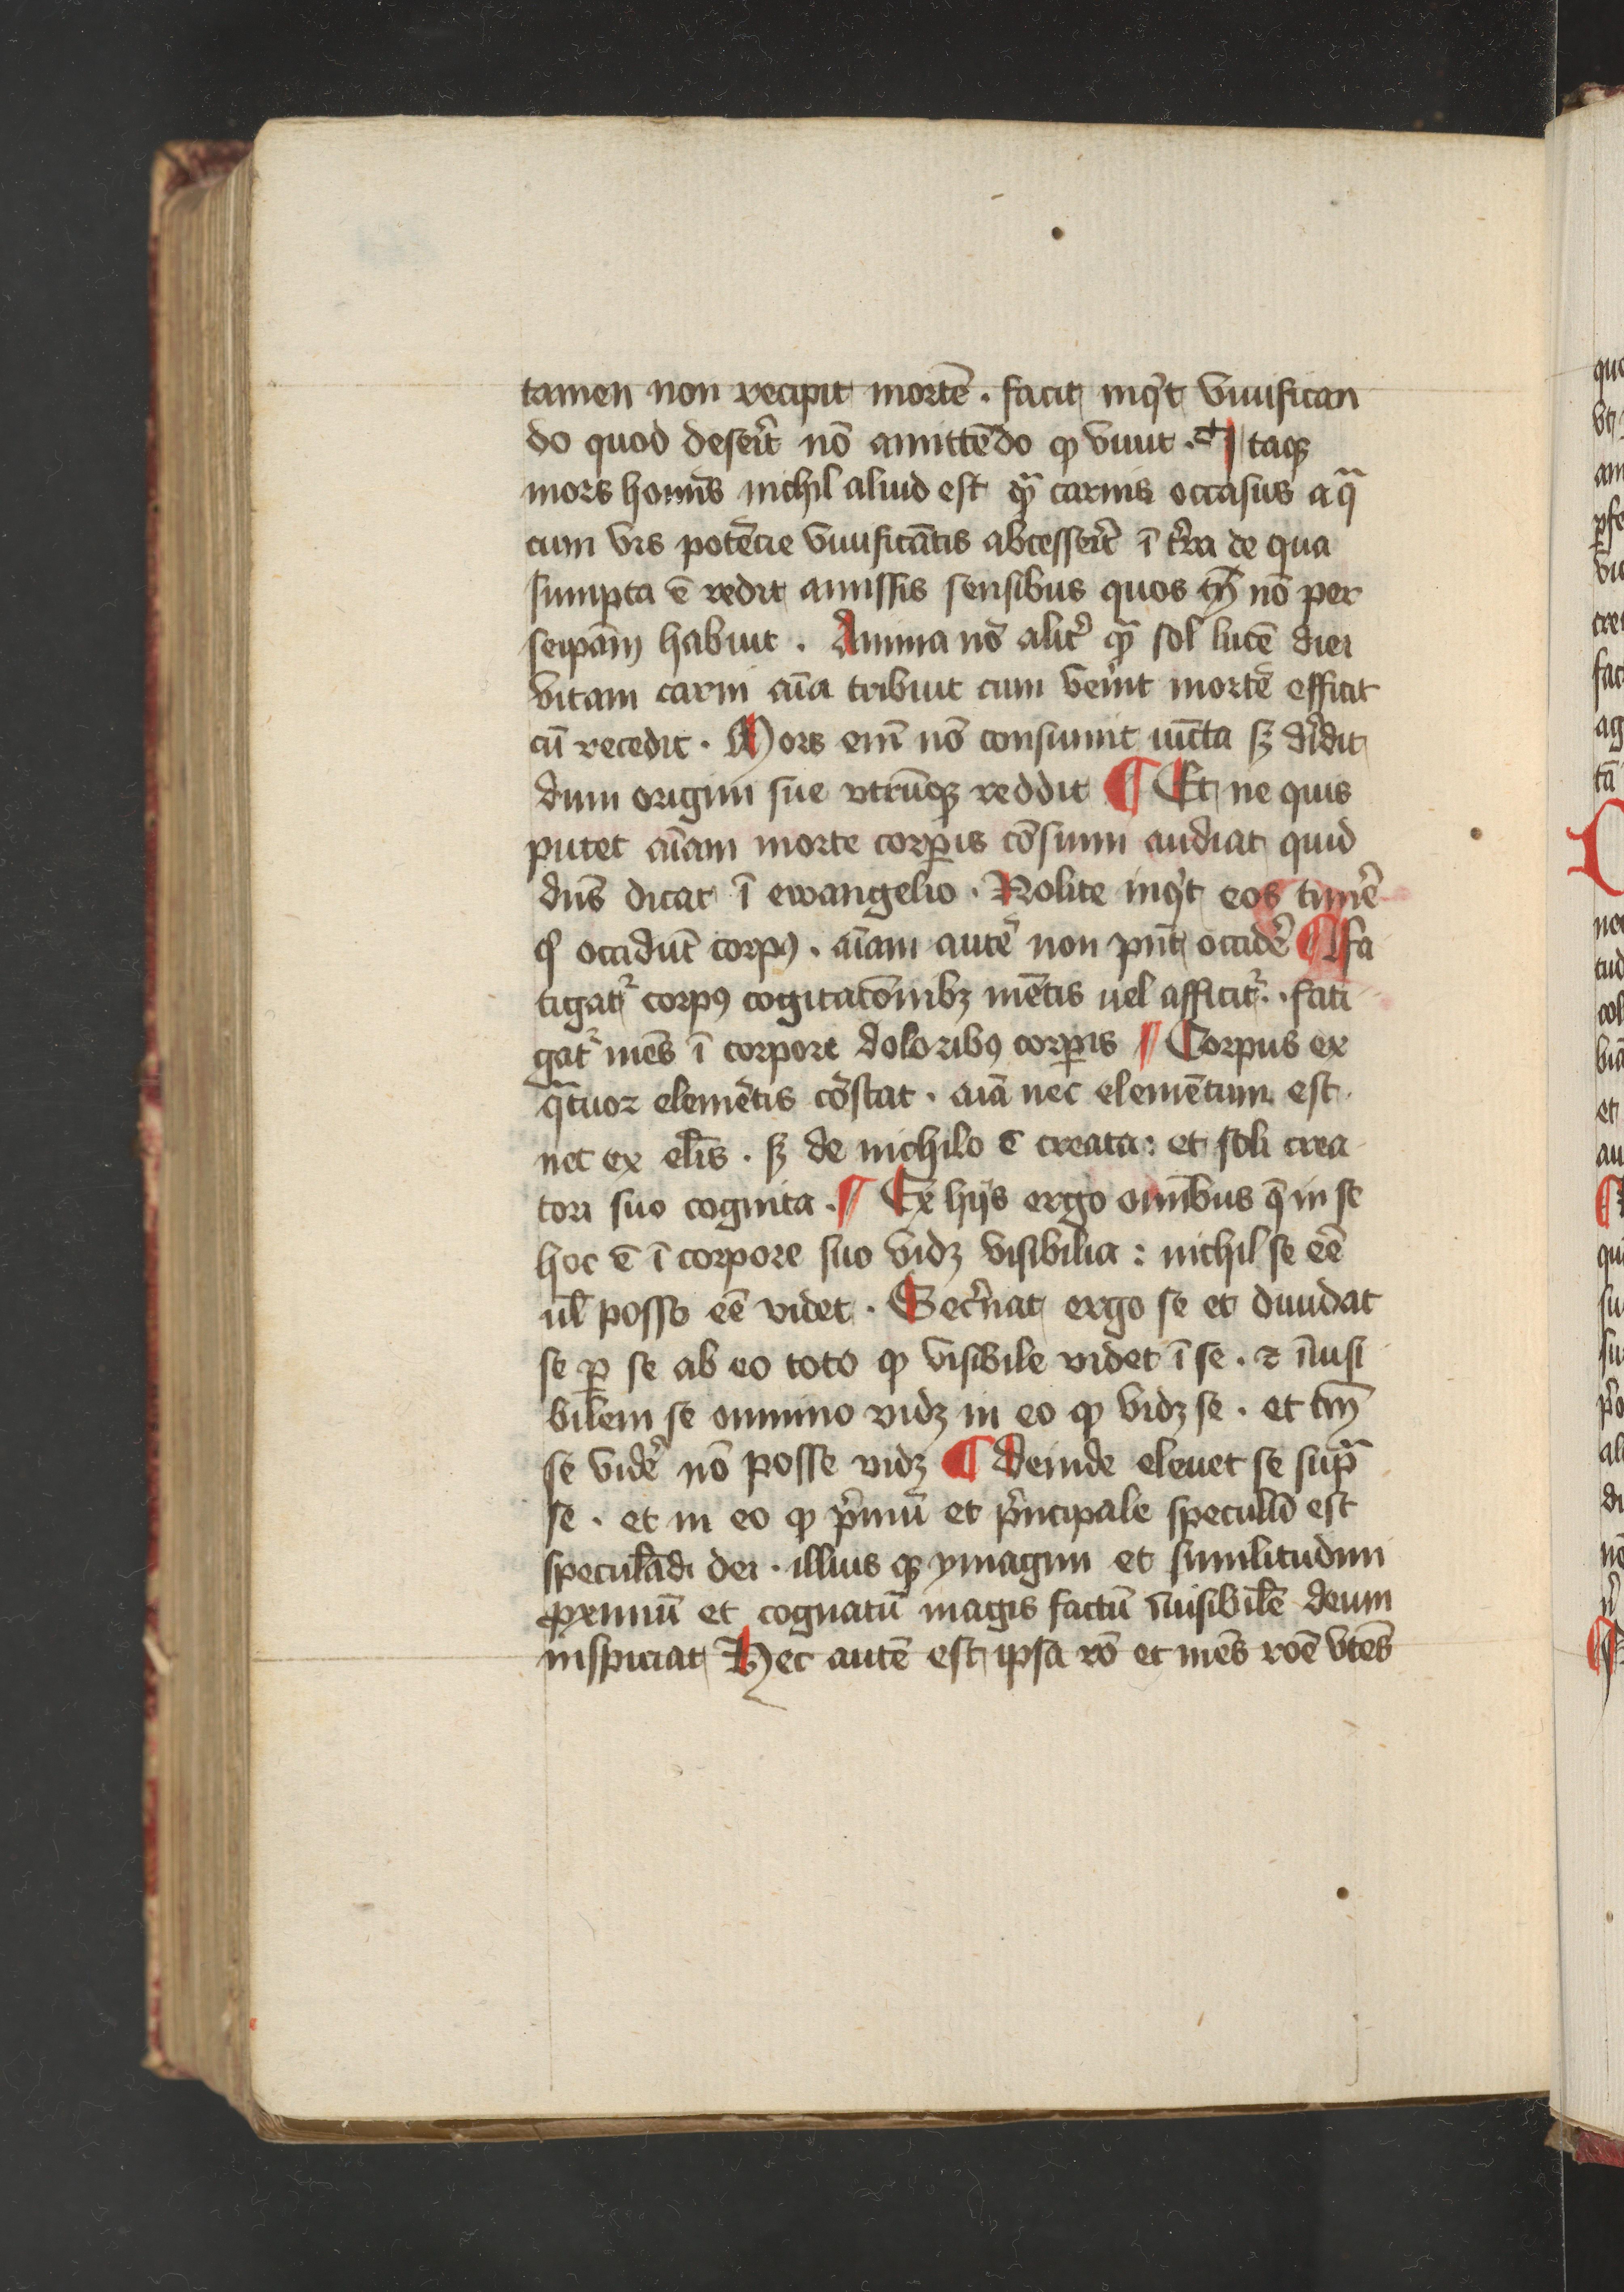 tamen non recipit mortē . facit inqͥt viuifican
do quod deserit̉ nō amittēdo ꝙ viuit . Itaqꝫ
mors homīs nichil aliud est qͣ carnis occasus a qͣ
cum vis potēcie viuificātis abcesserit̉ ī tr̉ra de qua
sumpta ē redit amissis sensibus quos tn̄ nō per
seip̄am habuit . Anima nō alit̉ qͣ sol lucē diei
vitam carni aīa tribuit cum ven̉it mortē efficit
cū recedit . Mors eni̅ nō consumit iūcta sꝫ dỉdit
dum origini sue vtrūqꝫ reddit ¶ Et ne quis
putet aīam morte corꝑis cōsumi audiat quid
dn̄s dicat ī ewangelio . Nolite inqͥt eos timer̉e
qͥ occidūt corpꝰ . aīam autē non pn̄t occider̉e ¶ fa
tigat᷑ corpꝰ cogitacōnibꝫ mētis uel afficit᷑ . fati
gat᷑ mēs ī corpore doloribꝰ corꝑis ¶ Corpus ex
qͣtuor elemētis cōstat . aīa nec elemētum est
nec ex elīs . sꝫ de nichilo ē creata : et soli crea
tori suo cognita . ¶ Ex hijs ergo omībus q̄ in se
hoc ē ī corpore suo vidꝫ visibilia : nichil se eē
ul̄ posse eē videt . Secn̉at ergo se et diuidat
se ꝑ se ab eo toto ꝙ visibile videt ī se . ⁊ īuisi
bilem se omnino vidꝫ in eo ꝙ vidꝫ se . et tn̄
se vider̉e nō posse vidꝫ ¶ Deinde eleuet se supͣ
se . et in eo ꝙ pͥmū et pͥncipale speculū est
speculādi dei . illius qꝫ ymagini et similitudini
ꝓximū et cognatū magis factū īuisibilē deum
inspiciat Hec autē est ipsa rō et mēs roē vtēs